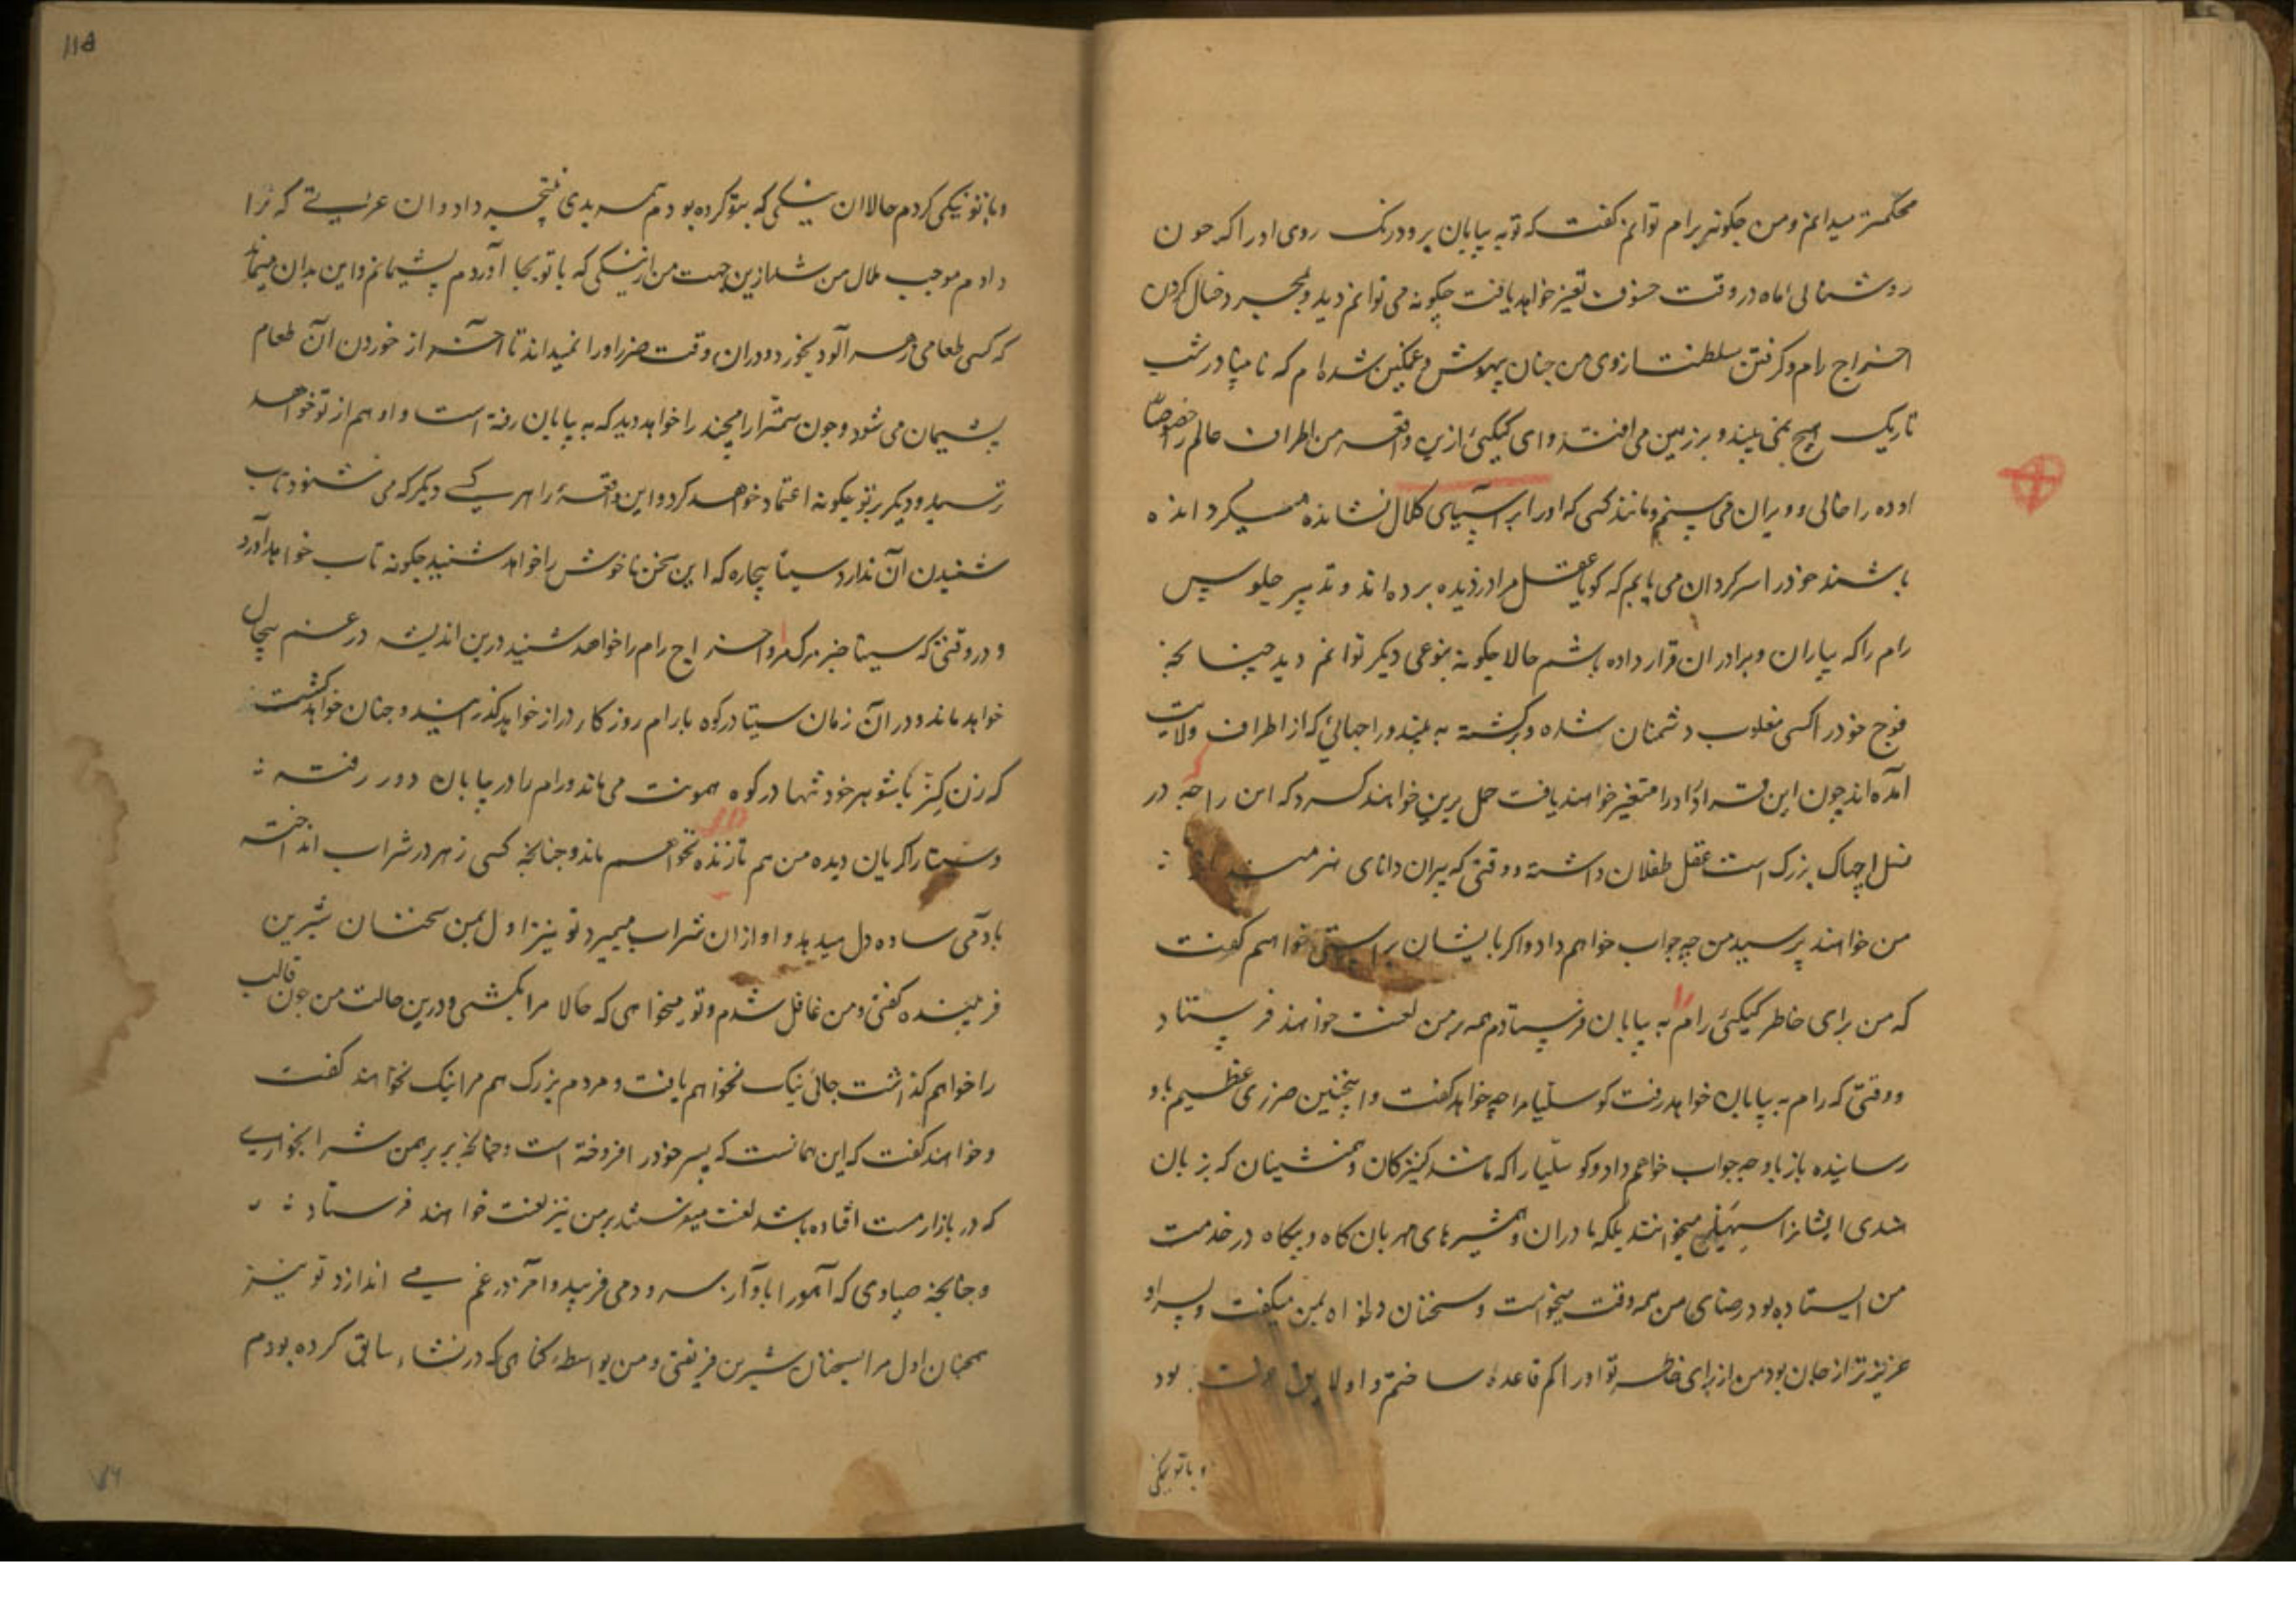 محکمتر میدانم و من چگونه برام توانم گفت که تو به بیابان برو و رنک روی او را که چون
روشنائی ماه در وقت خسوف تغیر خواهد یافت چگونه می توانم دید و بمجرد خیال کردن
اخراج رام و گرفتن سلطنت از وی من چنان بیهوش و غمکین شده ام که نابینا در شب
تاریک هیچ نمی بیند و بر زمین می افتد و ای کیکیئ ازین واقعه من اطراف عالم را خصوصاً
اوده را خالی و ویران می بینم و مانند کسی که او را بر آسیای کلال نشانده میگردانده
باشند خود را سرکردان می یابم که گویا عقل مرا دزدیده برده اند و تدبیر جلوس
رام را که بیاران و برادران قرار داده باشم حالا چگونه بنوعی دیگر توانم دید چنانچه
فوج خود را کسی مغلوب دشمنان شده و برگشته به بیند و راجهائی که از اطراف ولایت
آمده اند چون این قرارداد را متغیر خواهند یافت حمل برین خواهند کرد که این راجه در
نسل اچهاک بزرک است عقل طفلان داشته و وقتی که پیران دانای هنرمند
من خواهند پرسید من چه جواب خواهم داد و اگر بایشان براستی خواهم گفت
که من برای خاطر کیکیئ رام را به بیابان فرستادم همه بر من لعنت خواهند فرستاد
و وقتی که رام به بیابان خواهد رفت کوسلیا مرا چه خواهد گفت و اینچنین ضرری عظیم باو
رسانیده باز باو چه جواب خواهم داد و کوسلیا را که مانند کنیزکان و همنشینان که بزبان
هندی ایشانرا سهیلی میخوانند بلکه مادران و همشیرهای مهربان کاه و بیکاه در خدمت
من ایستاده بود رضای من همه وقت میخواست و سخنان دلخواه بمن میگفت و پسر او
عزیزتر از جان بود من از برای خاطر تو او را کم قاعده ساختم و او لایق عزت بود
و با تو نیکی
115
و با تو نیکی کردم حالا آن نیکی که بتو کرده بودم همه بدی نتیجه داد و آن عزتی که ترا
دادم موجب ملال من شد ازین جهت من از نیکی که با تو بجا آوردم پشیمانم و این بدان میماند
که کسی طعامی زهر آلود بخورد و دران وقت ضرر او را نمیداند تا آخر از خوردن آن طعام
پشیمان می شود و چون سمترا رامچند را خواهد دید که به بیابان رفته است و او هم از تو خواهد
ترسید و دیگر بر تو چگونه اعتماد خواهد کرد و این واقعه را هر کسی دیگر که می شنود تاب
شنیدن آن ندارد سیتا بیچاره که این سخن ناخوش را خواهد شنید چگونه تاب خواهد آورد
و در وقتی که سیتا خبر مرک مرا و اخراج رام را خواهد شنید درین اندیشه در غم بیحال
خواهد ماند و در آن زمان سیتا در کوه با رام روزکار دراز خواهد گذرانید و چنان خواهد گشت
که زن کنر با شوهر خود تنها در کوه همونت می ماند و رام را در بیابان دور رفته
و سیتا را گریان دیده من هم تا زنده نخواهم ماند و چنانچه کسی زهر در شراب انداخته
بآدمی ساده دل میدهد و او ازان شراب میمیرد تو نیز اول بمن سخنان شیرین
فریبنده گفتی و من غافل شدم و تو میخواهی که حالا مرا بکشی و درین حالت من چون قالب
را خواهم گذاشت جائی نیک نخواهم یافت و مردم بزرک هم مرا نیک نخواهند گفت
و خواهند گفت که این همانست که پسر خود را فروخته است و چنانچه بر برهمن شرابخواری
که در بازار مست افتاده باشد لعنت میفرستند بر من نیز لعنت خواهند فرستاد
و چنانچه صیادی که آهو را باواز سرود می فریبد و آخر در غم می اندازد تو نیز
همچنان اول مرا بسخنان شیرین فریفتی و من بواسطه گناهی که در نشاء سابق کرده بودم